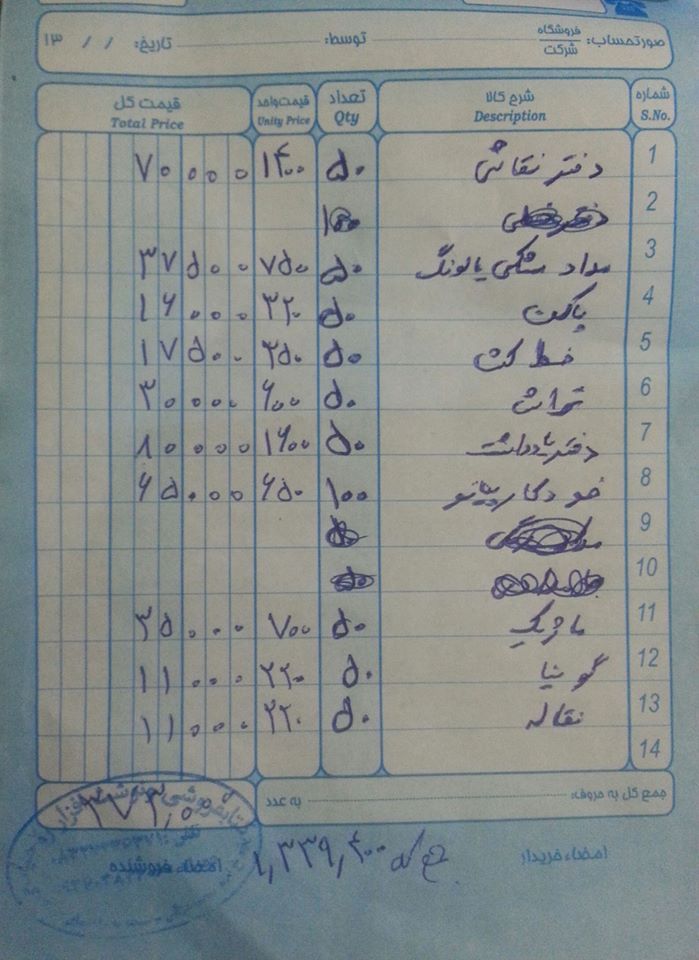 صورتحساب: فروشگاه شرکت توسط: تاریخ: / / ۱۳
شماره شرح کالا تعداد قیمت واحد قیمت کل
S.No. Description Qty Unity Price Total Price
1 دفتر نقاشی ۵۰ ۱۴۰۰ ۷۰۰۰۰
2
3 مداد مشکی پالونگ ۵۰ ۷۵۰ ۳۷۵۰۰
4 پاکت ۵۰ ۳۲۰ ۱۶۰۰۰
5 خط کش ۵۰ ۳۵۰ ۱۷۵۰۰
6 تراش ۵۰ ۶۰۰ ۳۰۰۰۰
7 دفتر یادداشت ۵۰ ۱۶۰۰ ۸۰۰۰۰
8 خودکار پیانو ۱۰۰ ۶۵۰ ۶۵۰۰۰
9
10
11 ماژیک ۵۰ ۷۰۰ ۳۵۰۰۰
12 گونیا ۵۰ ۲۲۰ ۱۱۰۰۰
13 نقاله ۵۰ ۲۲۰ ۱۱۰۰۰
14
جمع کل به حروف: به عدد
امضاء خریدار جمع کل ۱,۳۳۹,۴۰۰ امضاء فروشنده